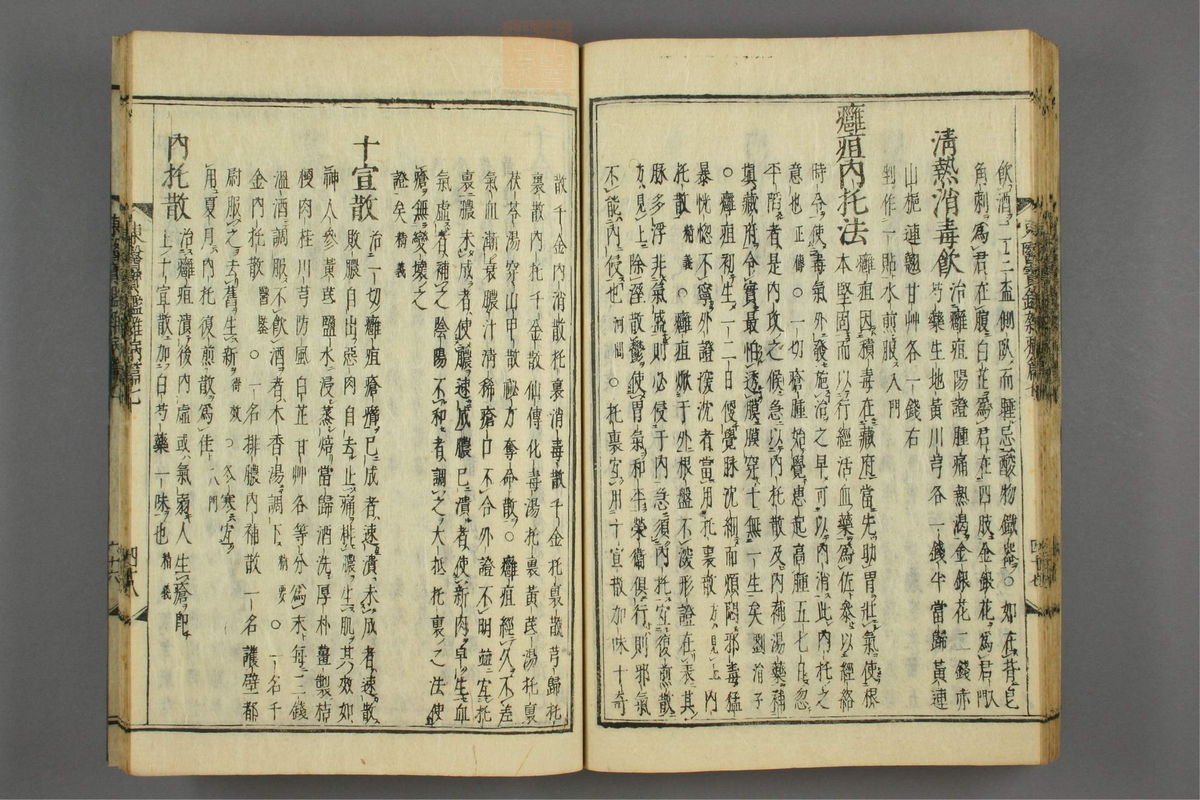 飮酒一二盃側臥而睡忌酸物鐵器○如在背皂
角刺爲君在腹白芷爲君在四肢金銀花爲君
淸熱消毒飮治癰疽陽證腫痛熱渴金銀花二錢赤
芍藥生地黃川芎各一錢半當歸黃連
山梔連翹甘艸各一錢右
剉作一貼水煎服入門
癰疽內托法癰疽因積毒在藏府當先助胃壯氣使根
本堅固而以行經活血藥爲佐參以經絡
時令使毒氣外發施治之早可以內消此內托之
意也正傳○一切瘡腫始覺患起高腫五七日忽
平陷者是內攻之候急以內托散及內補湯藥補
眞藏府令實最怕透膜膜穿十無一生矣劉涓子
○癰疽初生一二日便覺脉沈細而煩悶邪毒猛
暴恍惚不寧外證深沈者當用托裏散方見上內
托散精義○癰疽焮于外根盤不深形證在表其
脉多浮非氣盛則必侵于內急須內托宜復煎散
方見上除濕散鬱使胃氣和平榮衛俱行則邪氣
不能內侵也河間○托裏宜用十宣散加味十奇
散千金內消散托裏消毒散千金托裏散芎歸托
裏散內托千金散仙傳化毒湯托裏黃芪湯托裏
茯苓湯穿山甲散秘方奪命散○癰疽經久不差
氣血漸衰膿汁消稀瘡口不合外證不明並宜托
裏膿未成者使膿速成膿已潰者使新肉早生血
氣虛者補之陰陽不和者調之大抵托裏之法使
瘡無變壞之
證矣精義
十宣散治一切癰疽瘡癤已成者速潰未成者速散
敗膿自出惡肉自去止痛排膿生肌其效如
神人參黃芪鹽水浸蒸焙當歸酒洗厚朴薑製桔
梗肉桂川芎防風白芷甘艸各等分爲末每三錢
溫酒調服不飮酒者木香湯調下精要○一名千
金內托散醫鑑○一名排膿內補散一名護壁都
尉服之去舊生新得效○冬寒宜
用夏月內托復煎散爲佳入門
內托散治癰疽潰後內虛或氣弱人生瘡卽
上十宣散加白芍藥一味也精義